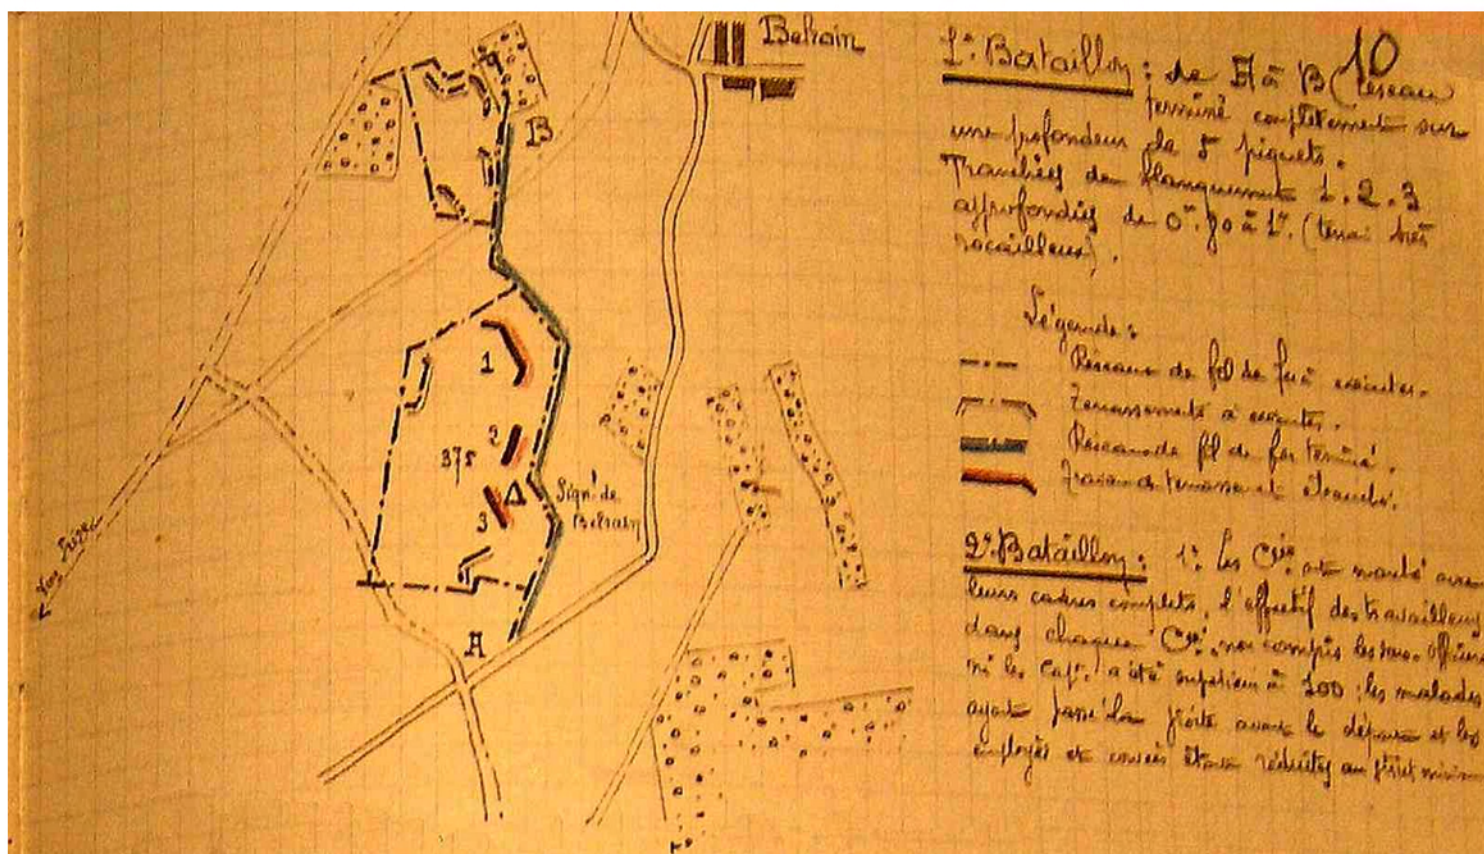 Belrain
10
1er Bataillon : de A à B (réseau
terminé complètement sur
une profondeur de 5 piquets.
Tranchées de flanquement 1. 2. 3
approfondies de 0m.80 à 1m. (terrain très
rocailleux).
B
1
2
375
3
Signal de
Belrain
A
Vers
Légende :
Réseaux de fil de fer à exécuter.
Terrassements à exécuter.
Réseaux de fil de fer terminé.
Travaux de terrassement
2e Bataillon : 1o Les Cies ont avec
leurs cadres complets, l'effectif des travailleurs
dans chaque Cie, non compris les sous-officiers
ni les cap. a été supérieur à 100 ; les malades
ayant passé la visite avant le départ et les
employés et étant réduits au strict minimum